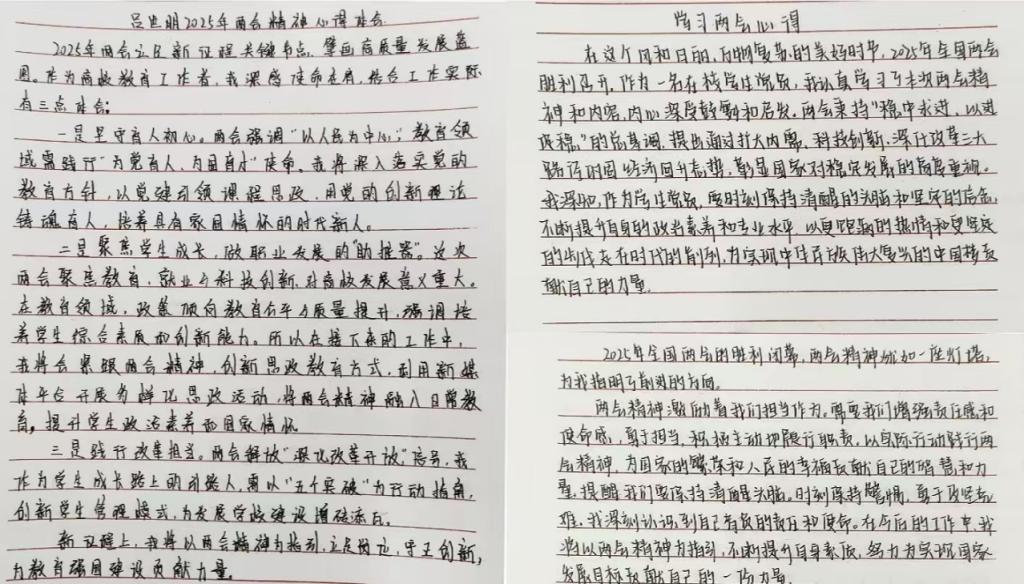 2025年两会精神心得体会
2025年两会立足新征程关键节点，擘画高质量发展蓝
图。作为高校教育工作者，我深感使命在肩，结合工作实际
有三点体会：
一是坚守育人初心。两会强调"以人民为中心"，教育领
域需践行"为党育人，为国育才"使命。我将深入落实党的
教育方针，以党建引领课程思政，用党的创新理论
铸魂育人，培养具有家国情怀的时代新人。
二是聚焦学生成长，做职业发展的"助推器"。这次
两会聚焦教育，就业与科技创新，对高校发展意义重大。
在教育领域，政策倾向教育公平与质量提升，强调培
养学生综合素质和创新能力。所以在接下来的工作中，
我将会紧跟两会精神，创新思政教育方式，利用新媒
体平台开展多样化思政活动，将两会精神融入日常教
育，提升学生政治素养和国家情怀
三是践行改革担当。两会释放"深化改革开放"信号，我
作为学生成长路上的引路人，需以"五个突破"为行动指南，
创新学生管理模式，为发展学校建设增砖添瓦。
新征程上，我将以两会精神为指引，立足岗位，守正创新，
为教育强国建设贡献力量。
学习两会心得
在这个风和日丽，万物复苏的美好时节，2025年全国两会
胜利召开。作为一名在校学生党员，我认真学习了本次两会精
神和内容，内心深受鼓舞和启发。两会秉持"稳中求进，以进
促稳"的总基调，提出通过扩大内需，科技创新，深化改革三大
路径巩固经济回升态势，彰显国家对稳定发展的高度重视。
我深知，作为学生党员，要时刻保持清醒的头脑和坚定的信念，
不断提升自身的政治素养和专业水平，以更饱满的热情和更坚定
的步伐走在时代的前列，为实现中华民族伟大复兴的中国梦贡
献自己的力量。
2025年全国两会的胜利闭幕，两会精神犹如一座灯塔，
为我指明了前进的方向。
两会精神激励着我们担当作为。需要我们增强责任感和
使命感，勇于担当，积极主动地履行职责，以实际行动践行两
会精神，为国家的繁荣和人民的幸福贡献自己的智慧和力
量，提醒我们要保持清醒头脑。时刻保持警惕，勇于攻坚克
难，我深刻认识到自己肩负的责任和使命。在今后的工作中，我
将以两会精神为指引，不断提升自身素质，努力为实现国家
发展目标贡献自己的一份力量。